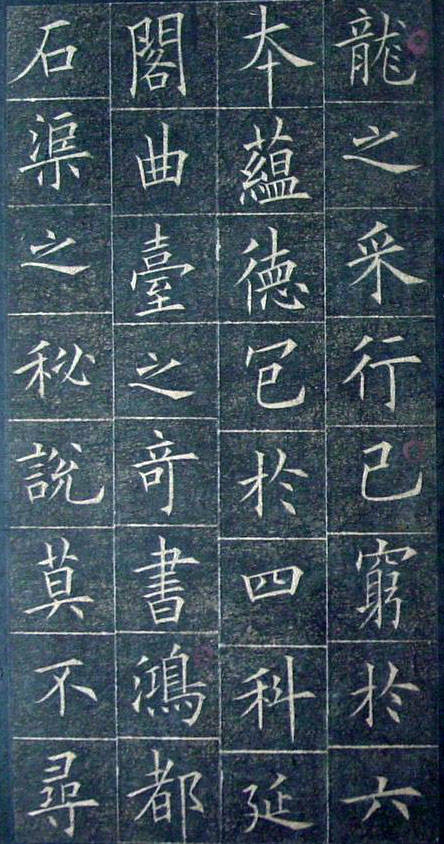 龍之采行已窮於六
本蘊德包於四科延
閣曲臺之奇書鴻都
石渠之秘說莫不尋